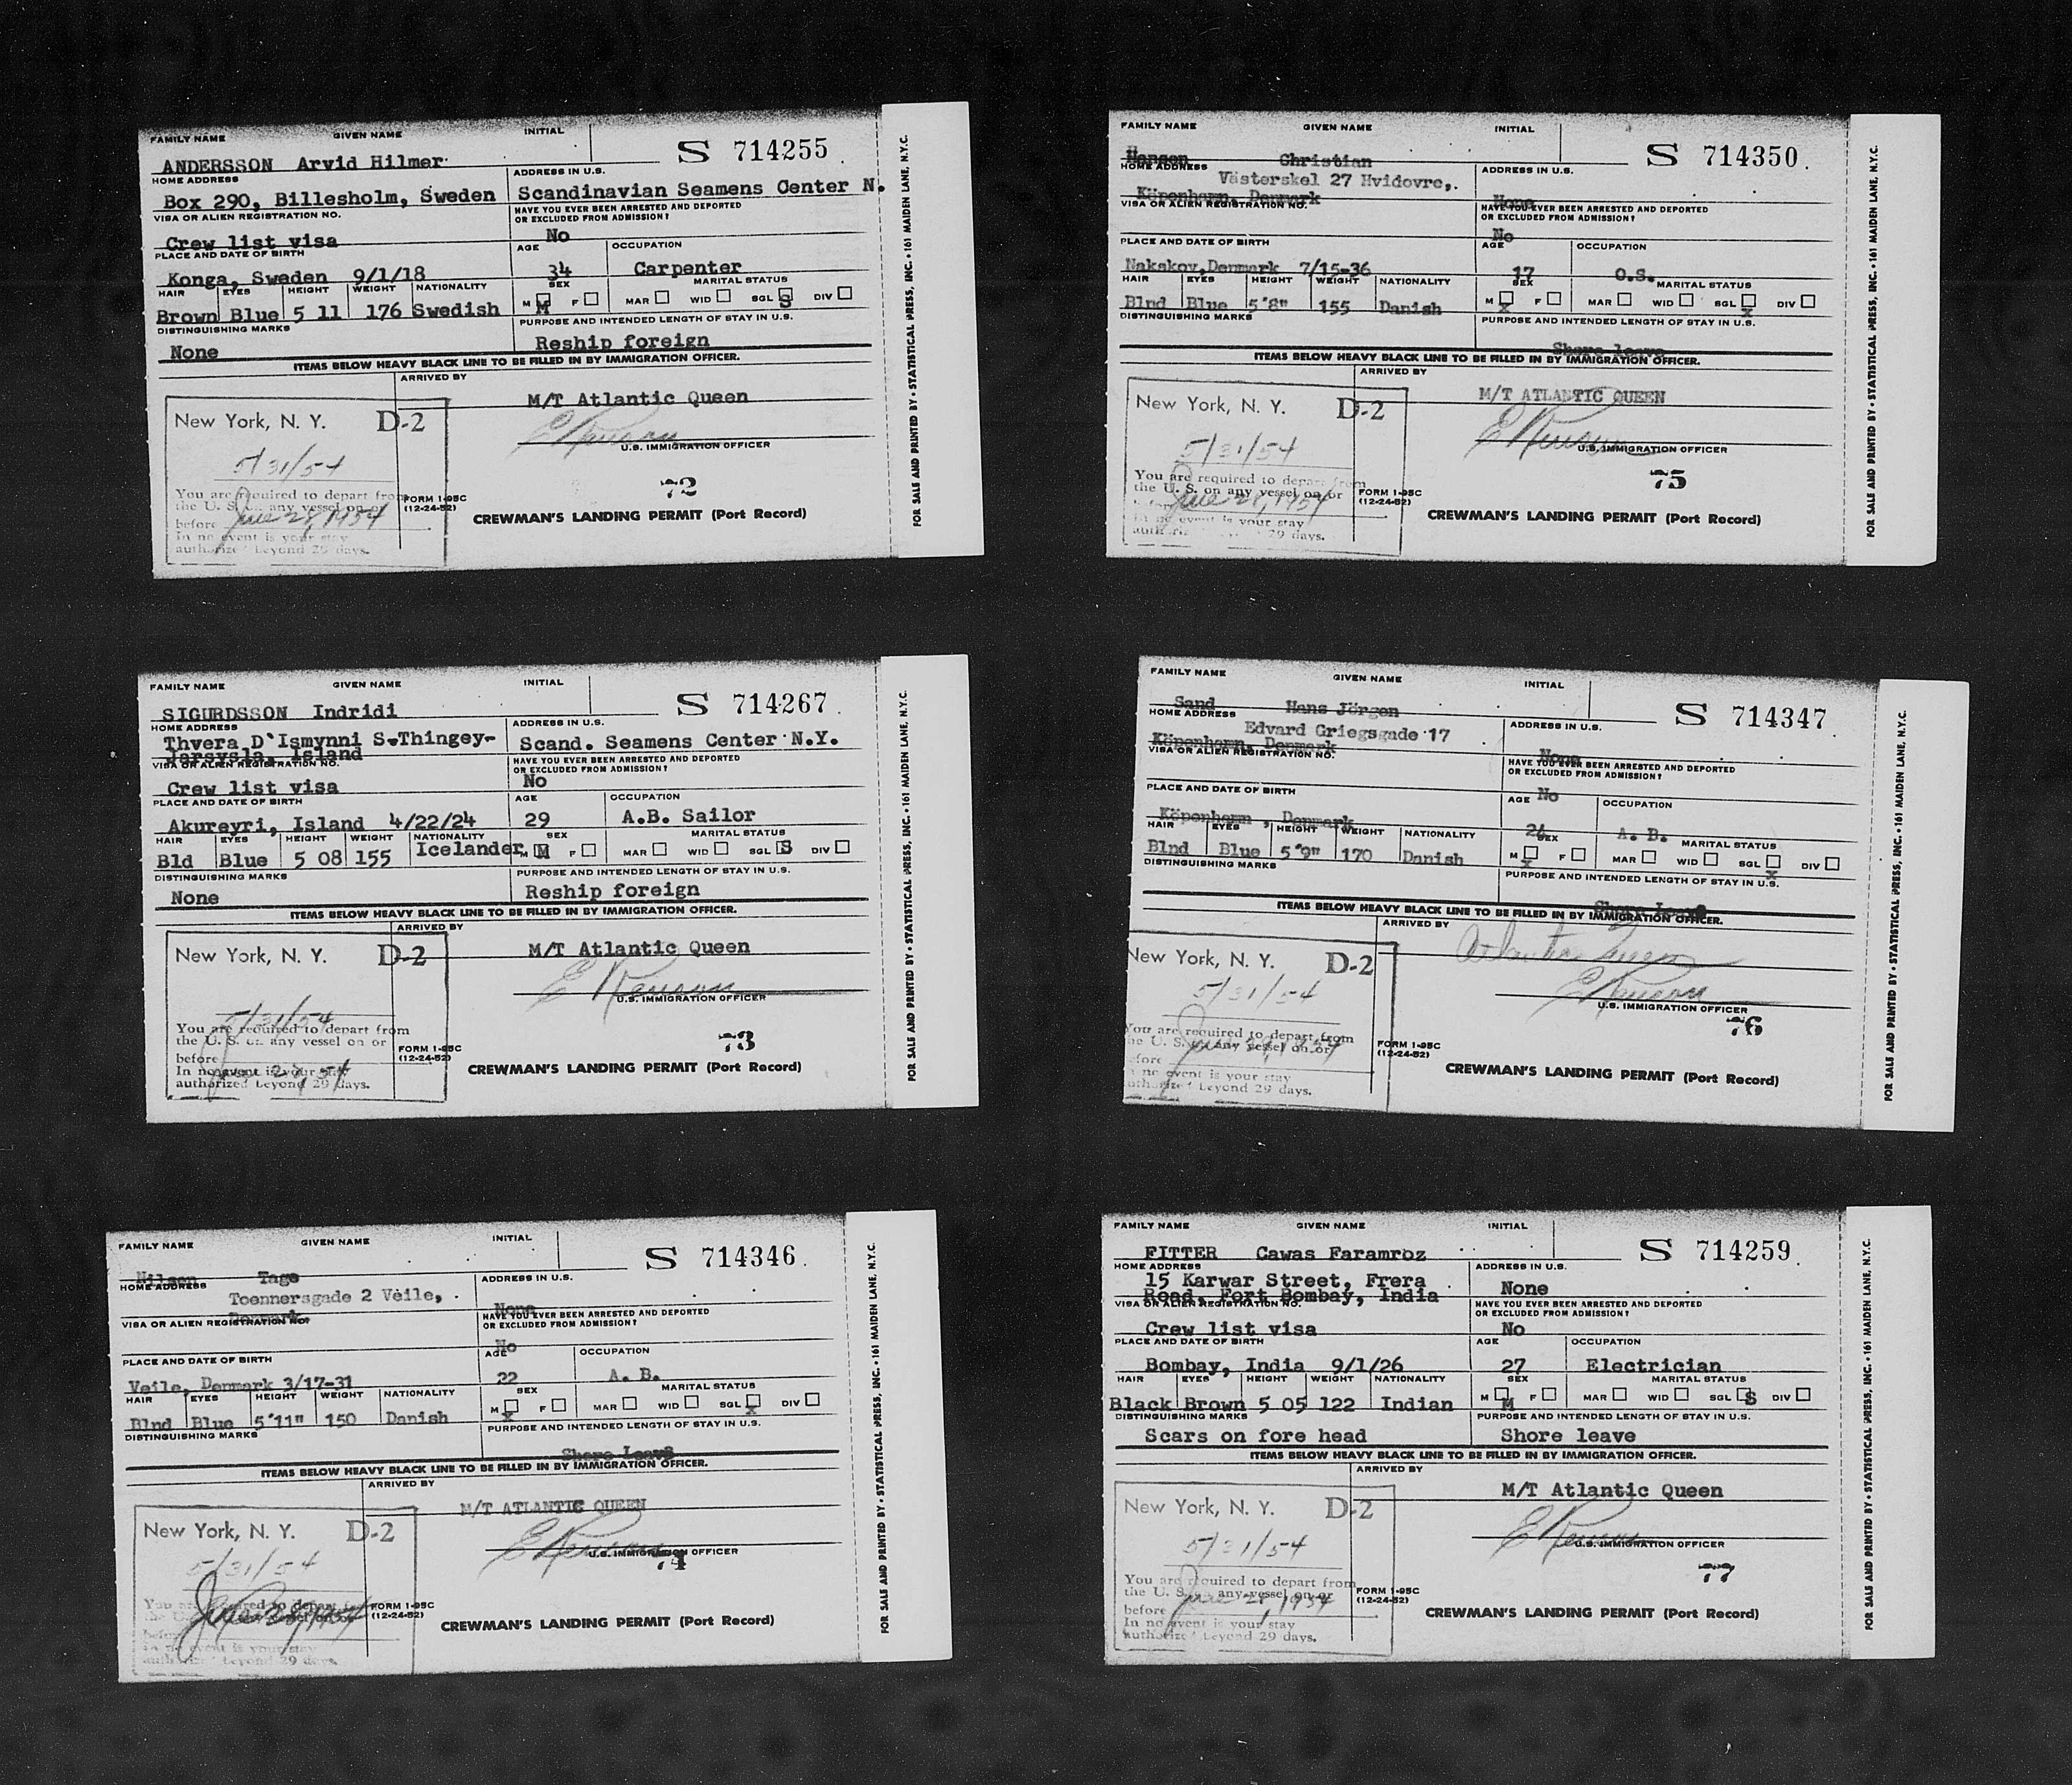 FAMILY NAME GIVEN NAME INITIAL
S 714255
ANDERSSON Arvid Hilmer
HOME ADDRESS ADDRESS IN U.S.
Box 290, Billesholm, Sweden Scandinavian Seamens Center N.
VISA OR ALIEN REGISTRATION NO. HAVE YOU EVER BEEN ARRESTED AND DEPORTED
OR EXCLUDED FROM ADMISSION?
Crew list visa No
PLACE AND DATE OF BIRTH AGE OCCUPATION
Konga, Sweden 9/1/18 34 Carpenter
HAIR EYES HEIGHT WEIGHT NATIONALITY SEX MARITAL STATUS
M M F MAR WID SGL S DIV
Brown Blue 5 11 176 Swedish
DISTINGUISHING MARKS PURPOSE AND INTENDED LENGTH OF STAY IN U.S.
None Reship foreign
ITEMS BELOW HEAVY BLACK LINE TO BE FILLED IN BY IMMIGRATION OFFICER.
ARRIVED BY
M/T Atlantic Queen
New York, N. Y. D-2
U.S. IMMIGRATION OFFICER
5/31/54
72
You are required to depart from
the U. S. on any vessel on or
before June 28, 1954
In no event is your stay
authorized beyond 29 days.
FORM I-95C
(12-24-52)
CREWMAN'S LANDING PERMIT (Port Record)
FOR SALE AND PRINTED BY • STATISTICAL PRESS, INC. • 161 MAIDEN LANE, N.Y.C.
FAMILY NAME GIVEN NAME INITIAL
S 714350
Hansen Christian
HOME ADDRESS ADDRESS IN U.S.
Västerskel 27 Hvidovre,
Köpenhamn, Denmark None
VISA OR ALIEN REGISTRATION NO. HAVE YOU EVER BEEN ARRESTED AND DEPORTED
OR EXCLUDED FROM ADMISSION?
No
PLACE AND DATE OF BIRTH AGE OCCUPATION
Nakskov, Denmark 7/15-36 17 O.S.
HAIR EYES HEIGHT WEIGHT NATIONALITY SEX MARITAL STATUS
M x F MAR WID SGL x DIV
Blnd Blue 5'8" 155 Danish
DISTINGUISHING MARKS PURPOSE AND INTENDED LENGTH OF STAY IN U.S.
Shore leave
ITEMS BELOW HEAVY BLACK LINE TO BE FILLED IN BY IMMIGRATION OFFICER.
ARRIVED BY
M/T ATLANTIC QUEEN
New York, N. Y. D-2
U.S. IMMIGRATION OFFICER
5/31/54
75
You are required to depart from
the U. S. on any vessel on or
before June 28, 1954
In no event is your stay
29 days.
FORM I-95C
(12-24-52)
CREWMAN'S LANDING PERMIT (Port Record)
FOR SALE AND PRINTED BY • STATISTICAL PRESS, INC. • 161 MAIDEN LANE, N.Y.C.
FAMILY NAME GIVEN NAME INITIAL
S 714267
SIGURDSSON Indridi
HOME ADDRESS ADDRESS IN U.S.
Thvera D`Ismynni S.Thingey- Scand. Seamens Center N.Y.
Jarsysla, Island
VISA OR ALIEN REGISTRATION NO. HAVE YOU EVER BEEN ARRESTED AND DEPORTED
OR EXCLUDED FROM ADMISSION?
Crew list visa No
PLACE AND DATE OF BIRTH AGE OCCUPATION
Akureyri, Island 4/22/24 29 A.B. Sailor
HAIR EYES HEIGHT WEIGHT NATIONALITY SEX MARITAL STATUS
M M F MAR WID SGL S DIV
Bld Blue 5 08 155 Icelander
DISTINGUISHING MARKS PURPOSE AND INTENDED LENGTH OF STAY IN U.S.
None Reship foreign
ITEMS BELOW HEAVY BLACK LINE TO BE FILLED IN BY IMMIGRATION OFFICER.
ARRIVED BY
M/T Atlantic Queen
New York, N. Y. D-2
U.S. IMMIGRATION OFFICER
5/31/54
73
You are required to depart from
the U. S. on any vessel on or
before
In no event is your stay
authorized beyond 29 days.
FORM I-95C
(12-24-52)
CREWMAN'S LANDING PERMIT (Port Record)
FOR SALE AND PRINTED BY • STATISTICAL PRESS, INC. • 161 MAIDEN LANE, N.Y.C.
FAMILY NAME GIVEN NAME INITIAL
S 714347
Sand Hans Jörgen
HOME ADDRESS ADDRESS IN U.S.
Edvard Griegsgade 17
Köpenhamn, Denmark None
VISA OR ALIEN REGISTRATION NO. HAVE YOU EVER BEEN ARRESTED AND DEPORTED
OR EXCLUDED FROM ADMISSION?
PLACE AND DATE OF BIRTH AGE No OCCUPATION
Köpenhamn, Denmark A. B.
HAIR EYES HEIGHT WEIGHT NATIONALITY SEX MARITAL STATUS
M x F MAR WID SGL x DIV
Blnd Blue 5'9" 170 Danish
DISTINGUISHING MARKS PURPOSE AND INTENDED LENGTH OF STAY IN U.S.
Shore Leave
ITEMS BELOW HEAVY BLACK LINE TO BE FILLED IN BY IMMIGRATION OFFICER.
ARRIVED BY
Atlantic Queen
New York, N. Y. D-2
U.S. IMMIGRATION OFFICER
5/31/54
76
You are required to depart from
the U. S. on any vessel on or
before
In no event is your stay
authorized beyond 29 days.
FORM I-95C
(12-24-52)
CREWMAN'S LANDING PERMIT (Port Record)
FOR SALE AND PRINTED BY • STATISTICAL PRESS, INC. • 161 MAIDEN LANE, N.Y.C.
FAMILY NAME GIVEN NAME INITIAL
S 714346
Nilsen Tage
HOME ADDRESS ADDRESS IN U.S.
Toennersgade 2 Veile,
None
VISA OR ALIEN REGISTRATION NO. HAVE YOU EVER BEEN ARRESTED AND DEPORTED
OR EXCLUDED FROM ADMISSION?
No
PLACE AND DATE OF BIRTH AGE OCCUPATION
Veile, Denmark 3/17-31 22 A. B.
HAIR EYES HEIGHT WEIGHT NATIONALITY SEX MARITAL STATUS
M x F MAR WID SGL x DIV
Blnd Blue 5'11" 150 Danish
DISTINGUISHING MARKS PURPOSE AND INTENDED LENGTH OF STAY IN U.S.
Shore Leave
ITEMS BELOW HEAVY BLACK LINE TO BE FILLED IN BY IMMIGRATION OFFICER.
ARRIVED BY
M/T ATLANTIC QUEEN
New York, N. Y. D-2
U.S. IMMIGRATION OFFICER
74
5/31/54
June 28, 1954
In no event is your stay
29 days.
FORM I-95C
(12-24-52)
CREWMAN'S LANDING PERMIT (Port Record)
FOR SALE AND PRINTED BY • STATISTICAL PRESS, INC. • 161 MAIDEN LANE, N.Y.C.
FAMILY NAME GIVEN NAME INITIAL
S 714259
FITTER Cawas Faramroz
HOME ADDRESS ADDRESS IN U.S.
15 Karwar Street, Frera None
Road, Fort Bombay, India
VISA OR ALIEN REGISTRATION NO. HAVE YOU EVER BEEN ARRESTED AND DEPORTED
OR EXCLUDED FROM ADMISSION?
Crew list visa No
PLACE AND DATE OF BIRTH AGE OCCUPATION
Bombay, India 9/1/26 27 Electrician
HAIR EYES HEIGHT WEIGHT NATIONALITY SEX MARITAL STATUS
M M F MAR WID SGL S DIV
Black Brown 5 05 122 Indian
DISTINGUISHING MARKS PURPOSE AND INTENDED LENGTH OF STAY IN U.S.
Scars on fore head Shore leave
ITEMS BELOW HEAVY BLACK LINE TO BE FILLED IN BY IMMIGRATION OFFICER.
ARRIVED BY
M/T Atlantic Queen
New York, N. Y. D-2
U.S. IMMIGRATION OFFICER
5/31/54
77
You are required to depart from
the U. S. on any vessel on or
before June 28, 1954
In no event is your stay
authorized beyond 29 days.
FORM I-95C
(12-24-52)
CREWMAN'S LANDING PERMIT (Port Record)
FOR SALE AND PRINTED BY • STATISTICAL PRESS, INC. • 161 MAIDEN LANE, N.Y.C.